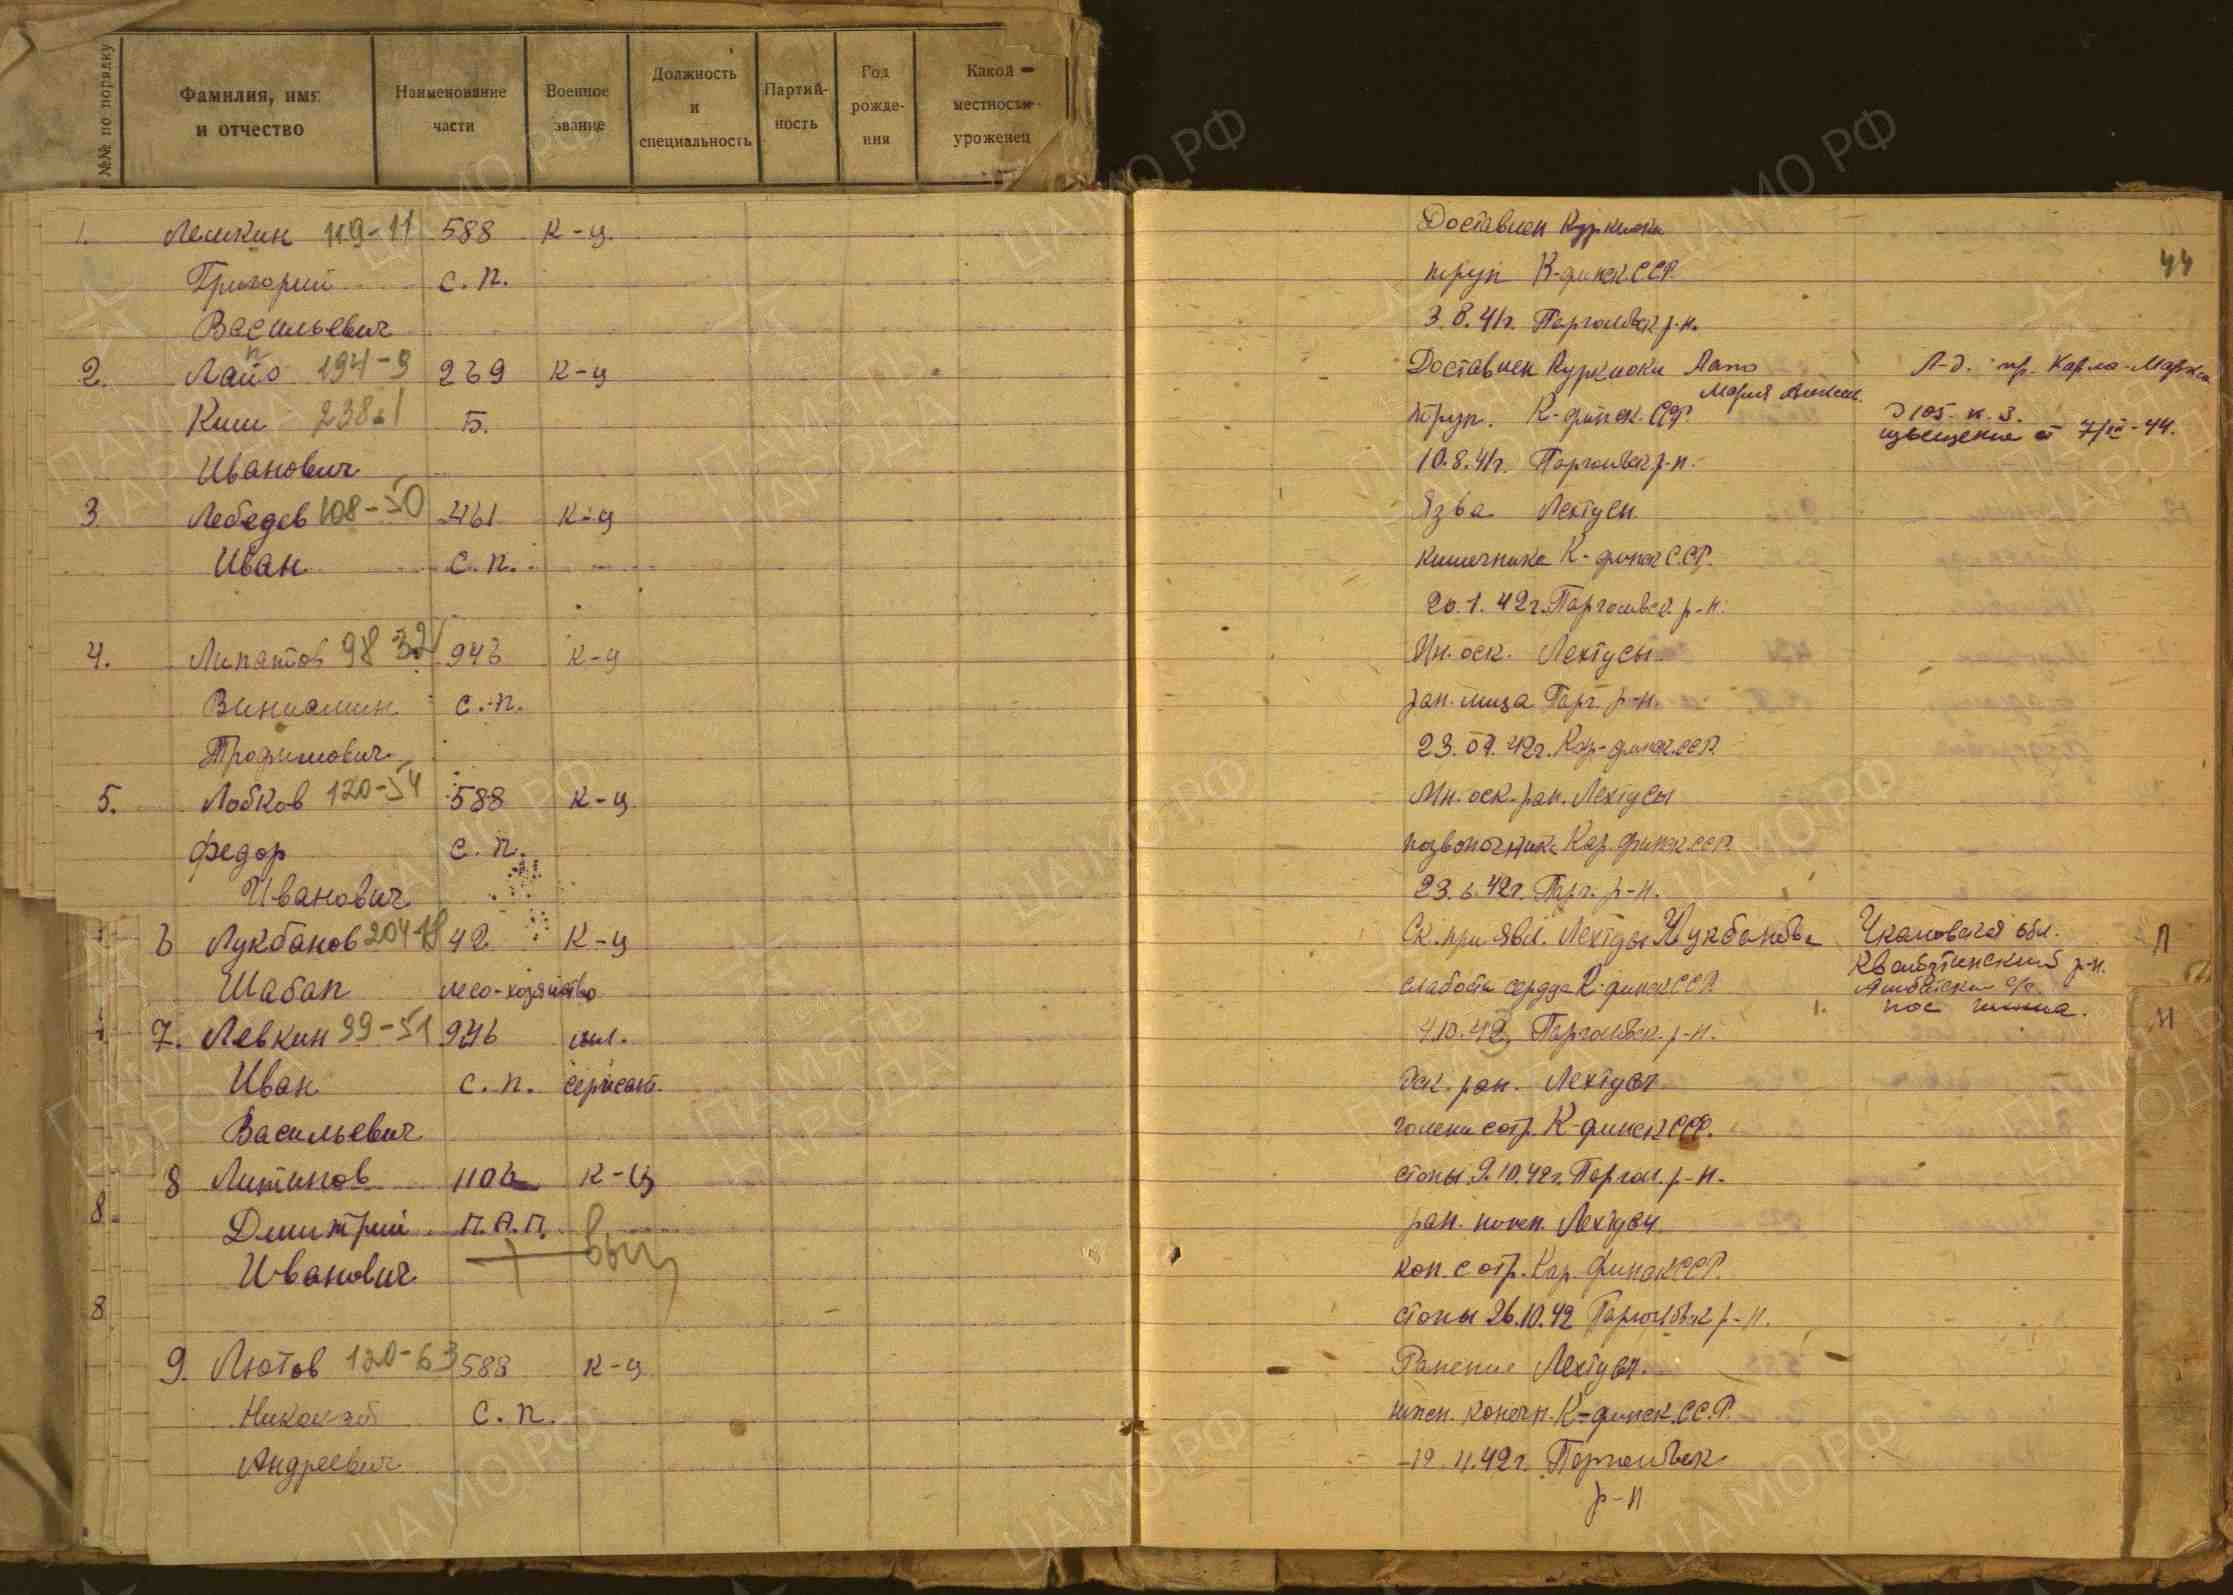 №№ по порядку
Фамилия, имя и отчество
Наименование части
Военное звание
Должность и специальность
Партийность
Год рождения
Какой местности уроженец
44
1. Лешкин 119-11 588 К-ц. Доставлен Куркиоки
Григорий с.п. труп К-финск ССР.
Васильевич 3.8.41г. Парголовск р-н.
2. Лапо 194-9 269 К-ц Доставлен Куркиоки Лапо Л-д. пр. Карла-Маркса
Мария
Киш 238.1 Б. труп. К-финск. ССР. д 105 к. 3.
извещение от 7/III-44.
Иванович 10.8.41г. Парголовск р-н.
3 Лебедев 108-50 461 К-ц Язва Лехтуси
Иван с.п. кишечника К-финск ССР.
20.1.42г. Парголовск. р-н.
4. Липатов 98 32 946 К-ц Ин. оск. Лехтусы
Виниамин с.п. ран. лица Парг. р-н.
Трофимович 23. 42г. Кар-финск ССР
5. Лобков 120-54 588 К-ц Мн. оск. ран. Лехтусы
Федор с.п. позвоночника Кар. финск ССР.
Иванович 23.6.42г. Парг. р-н.
6 Лукбанов 204 42 К-ц Ск. при явл. Лехтусы Лукбанова Чкаловская обл. Л
р-н.
Шабан лесо-хозяйство слабости сердца К-финск ССР.
пос
7. Левкин 99-51 946 мл. 4.10.42 Парголовск. р-н. М
Иван с.п. сержант. Оск. ран. Лехтуси
Васильевич голени с отр. К-финск ССР.
8 Литинов 1106 К-ц стопы 9.10.42г. Паргол. р-н.
8.
Дмитрий П.А.П. ран. Лехтуси
Иванович выц кон. с отр. Кар. Финск ССР.
8 стопы 26.10.42 Парголовск р-н.
9. Лютов 120-63 588 К-ц Ранение Лехтуси.
Николай с.п. конечн. К-финск. ССР.
Андреевич 42г. Парголовск
р-н
ЦА МО РФ
ПАМЯТЬ НАРОДА